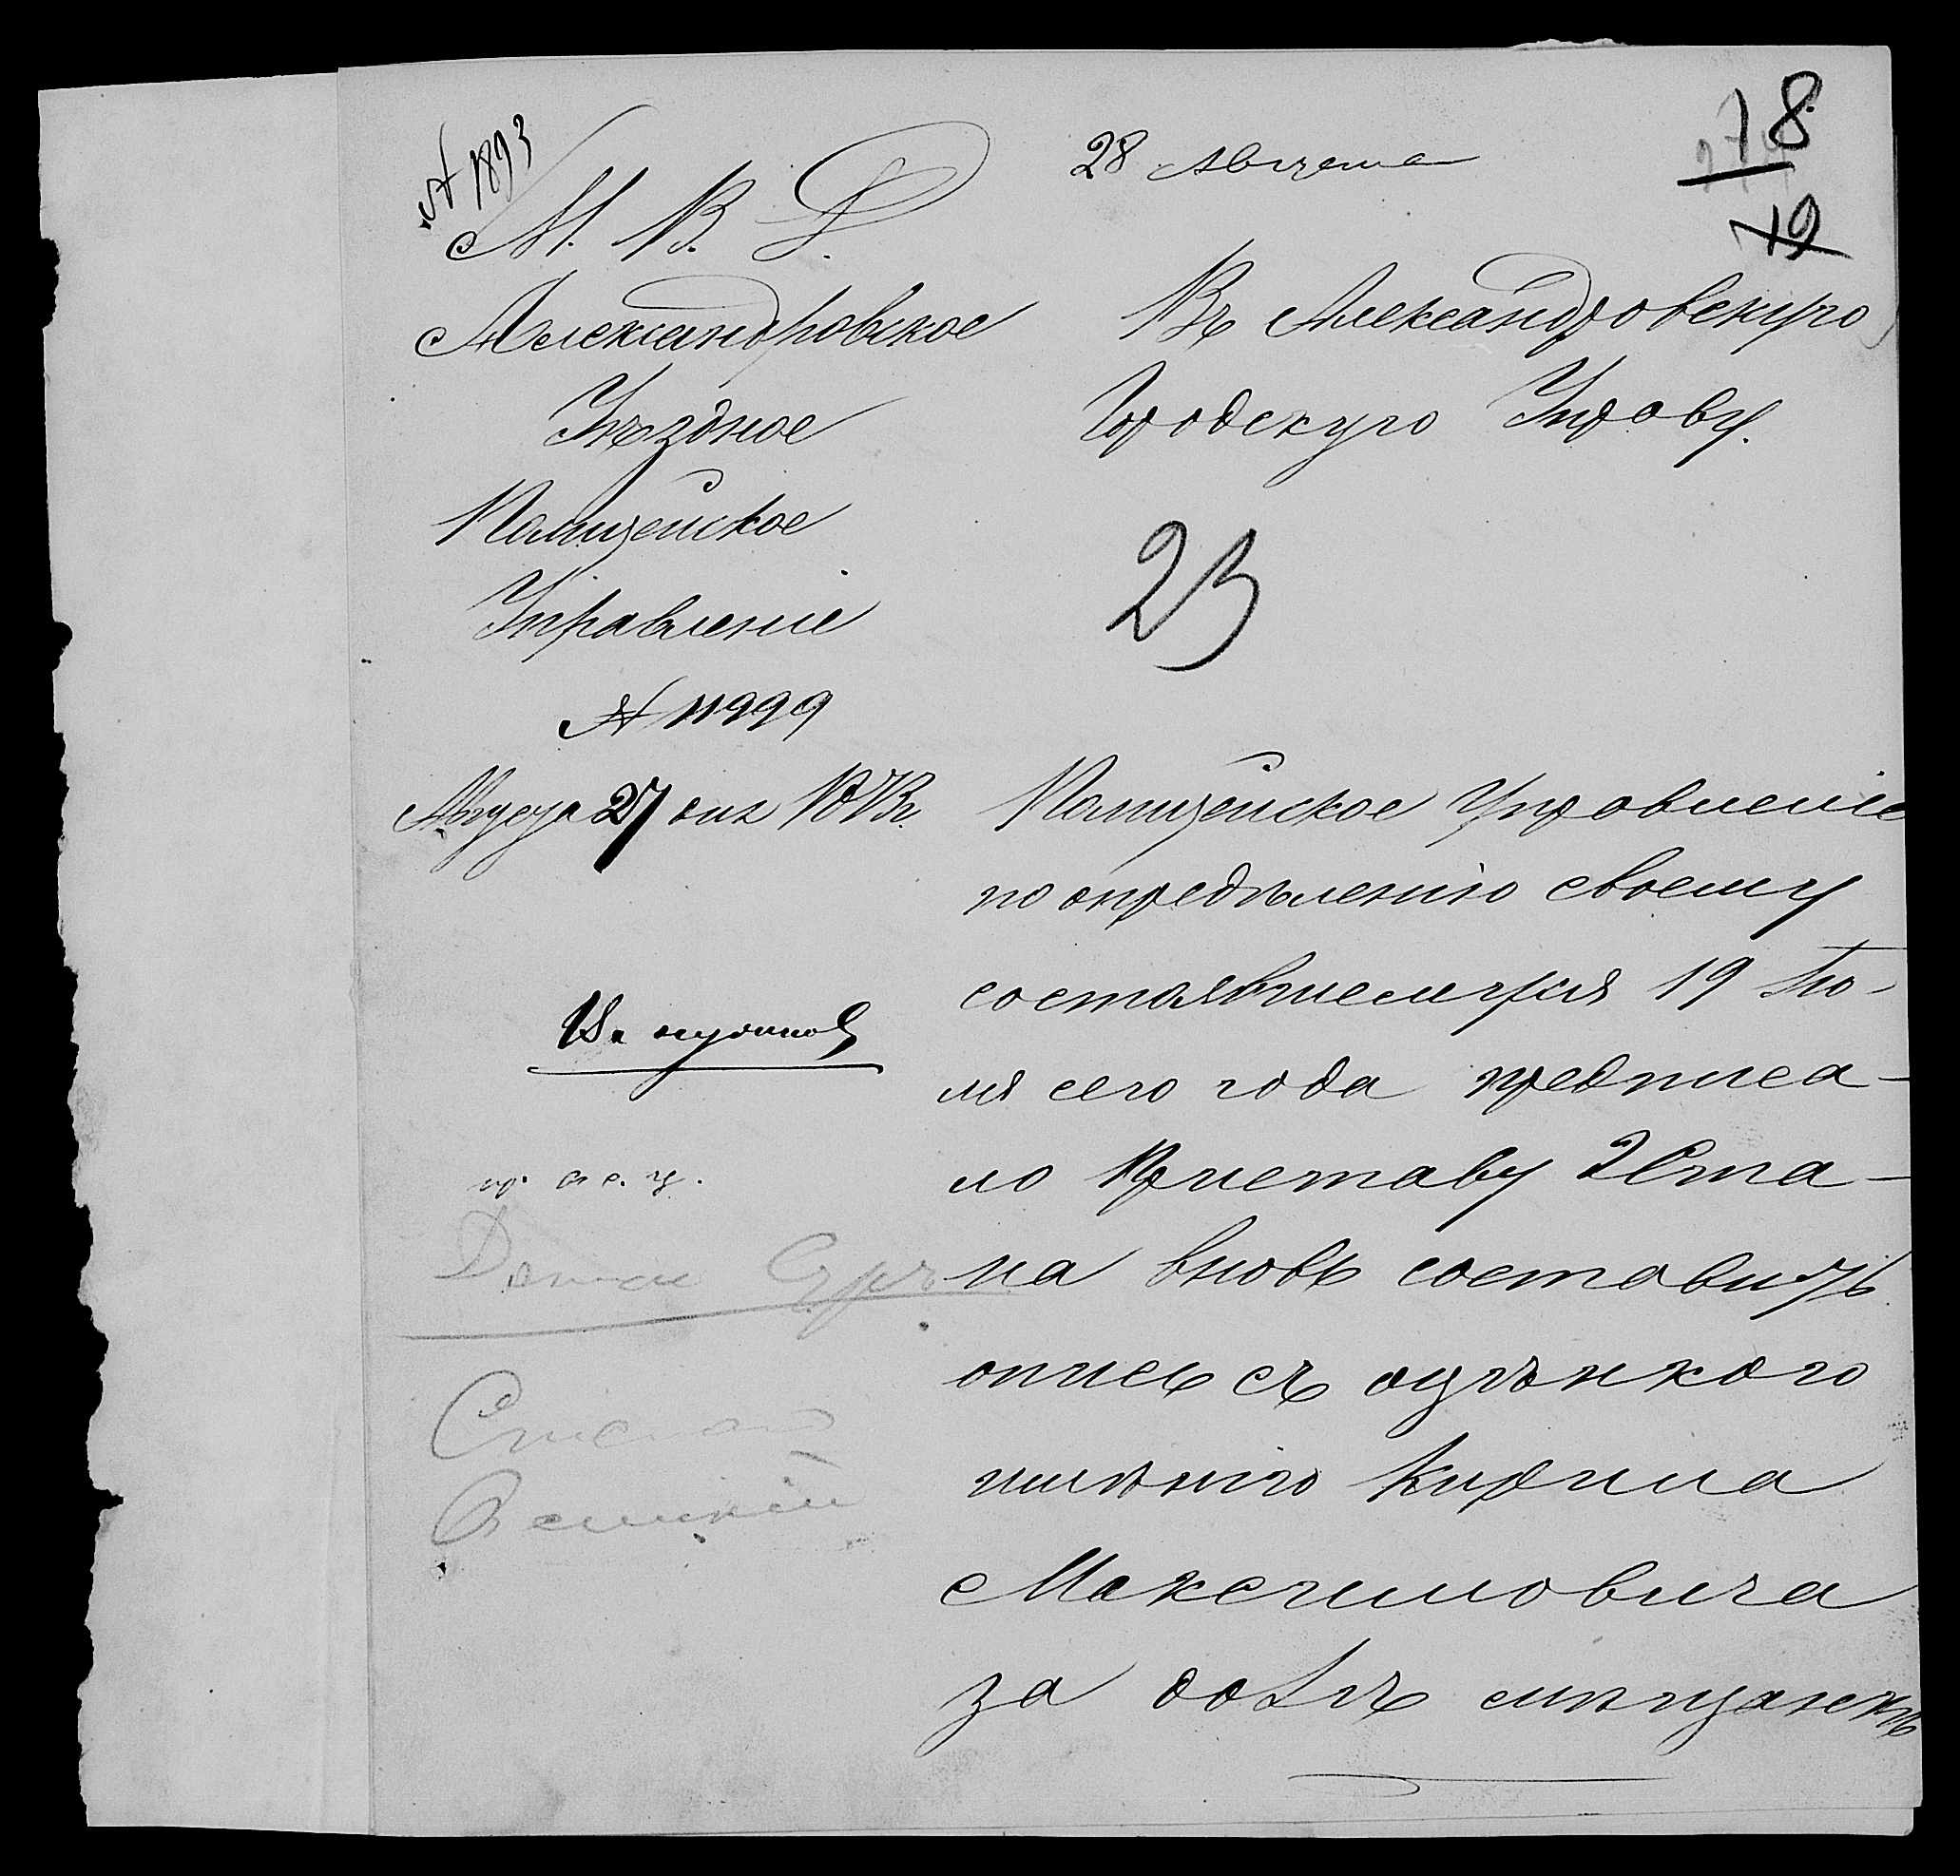 № 1893
28 Августа
18
19
М. В. Д.
Александровское
Уѣздное
Полицейское
Управленіе
№ 11999
Августа 27 дня 1873 г.
Въ Александровскую
Городскую Управу.
23
Полицейское Управленіе
по опредѣленію своему
состоявшемуся 19 Iю-
ля сего года предписа-
ло Приставу 2 Ста-
на вновь составить
опись съ оцѣнкою
имѣнію Кирила
Максимовича
за долгъ мѣщанкѣ